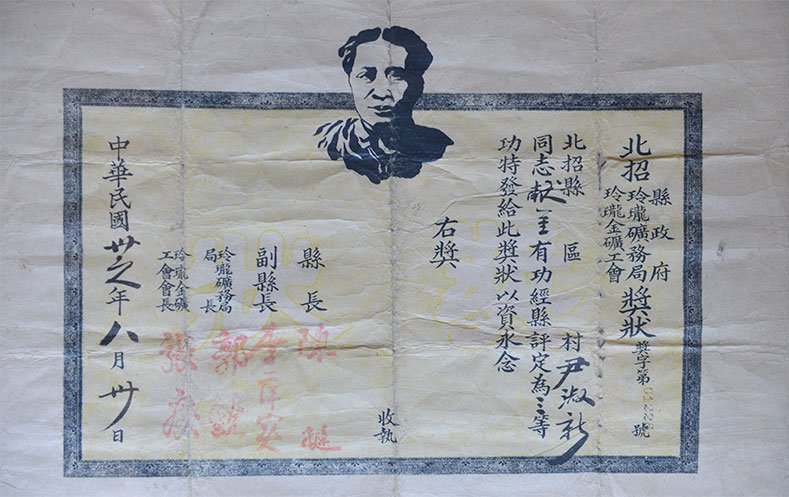 北招
縣政府
玲瓏礦務局
玲瓏金礦工會
獎狀
獎字第 號
北招縣 區 村尹淑新
同志獻金有功經縣評定為三等
功特發給此獎狀以資永念
右獎
收執
縣長 陳
副縣長 李
玲瓏礦務局局長 郭
玲瓏金礦工會會長 張
中華民國卅七年八月卅日